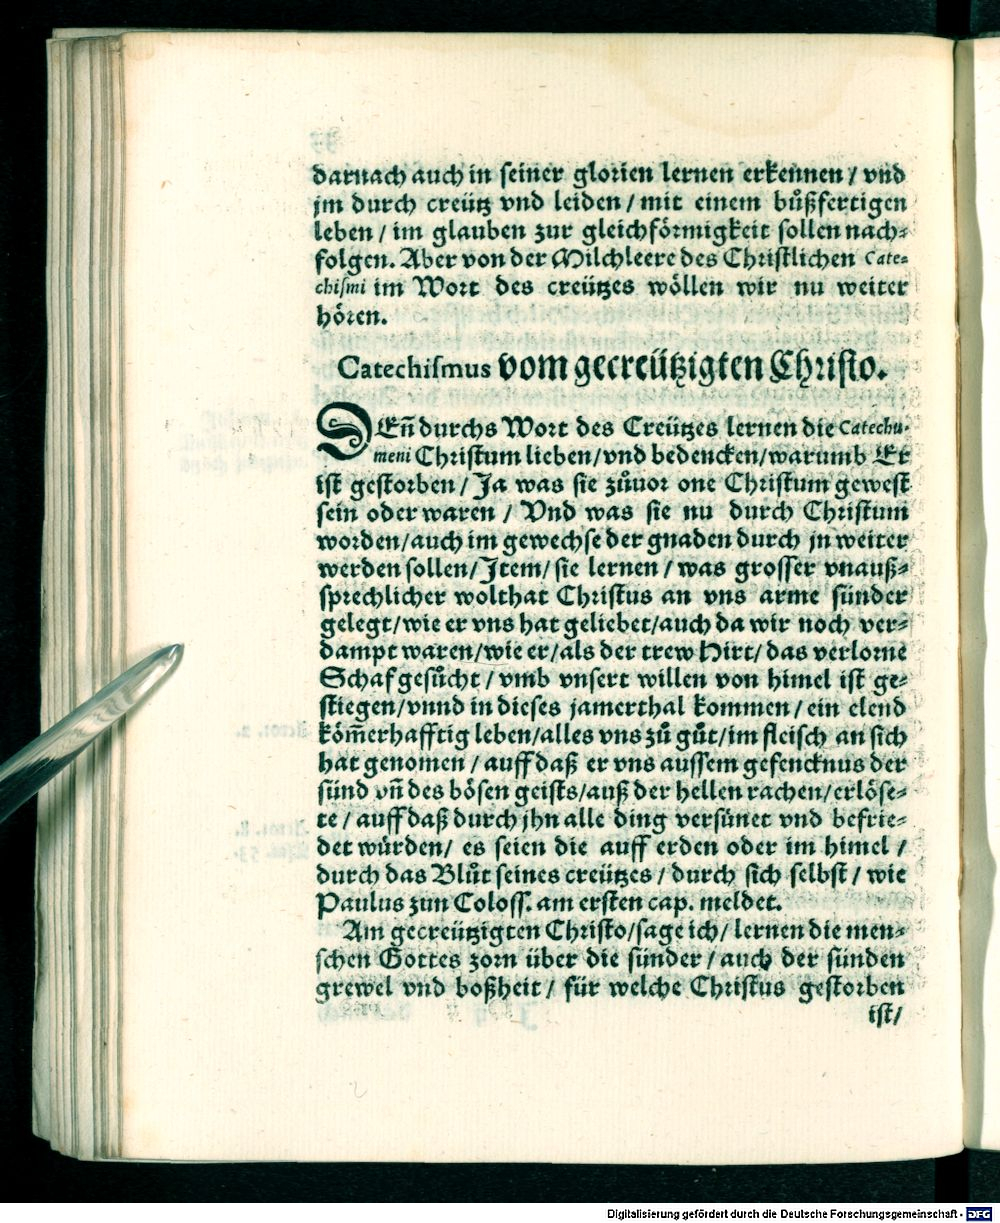 darnach auch in seiner glorien lernen erkennen / vnd
jm durch creütz vnd leiden / mit einem bůßfertigen
leben / im glauben zur gleichförmigkeit sollen nach⸗
folgen. Aber von der Milchleere des Christlichen Cate⸗
chismi im Wort des creützes wöllen wir nu weiter
hören.
Catechismus vom gecreützigten Christo.
DEñ durchs Wort des Creützes lernen die Catechu⸗
meni Christum lieben/vnd bedencken/warumb Er
ist gestorben / Ja was sie zůuor one Christum gewest
sein oder waren / Vnd was sie nu durch Christum
worden/auch im gewechse der gnaden durch jn weiter
werden sollen/Item/sie lernen / was grosser vnauß⸗
sprechlicher wolthat Christus an vns arme sünder
gelegt/wie er vns hat geliebet/auch da wir noch ver⸗
dampt waren/wie er/als der trew Hirt/das verlorne
Schaf gesůcht / vmb vnsert willen von himel ist ge⸗
stiegen/vnnd in dieses jamerthal kommen/ein elend
köm̃erhafftig leben/alles vns zů gůt/im fleisch an sich
hat genomen / auff daß er vns aussem gefencknus der
sünd vñ des bösen geists/auß der hellen rachen/erlöse⸗
te / auff daß durch jhn alle ding versünet vnd befrie⸗
det würden/ es seien die auff erden oder im himel /
durch das Blůt seines creützes / durch sich selbst / wie
Paulus zun Coloss. am ersten cap. meldet.
Am gecreützigten Christo/sage ich / lernen die men⸗
schen Gottes zorn über die sünder / auch der sünden
grewel vnd boßheit / für welche Christus gestorben
ist/
Digitalisierung gefördert durch die Deutsche Forschungsgemeinschaft - DFG